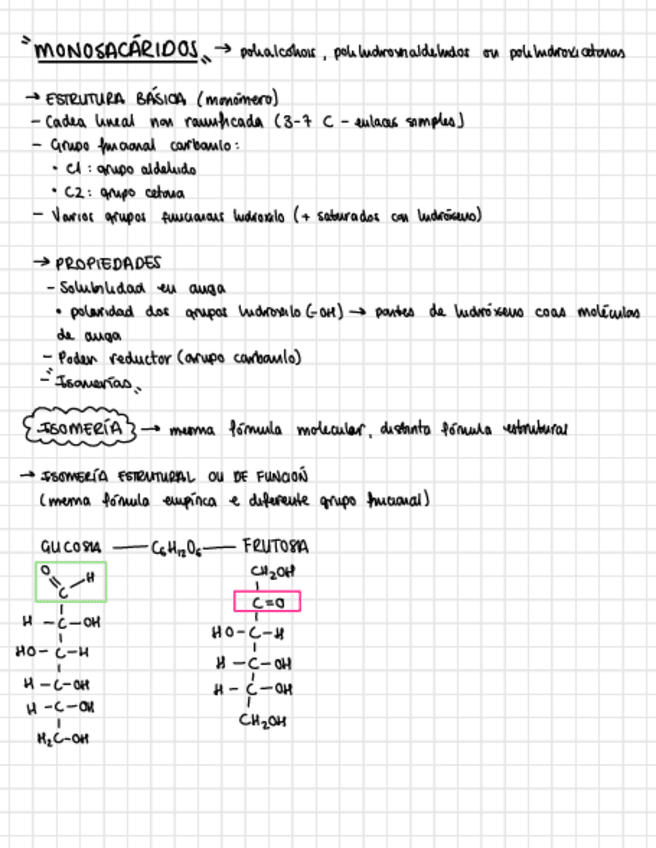 "MONOSACÁRIDOS" → polialcohois, polihidroxialdehidos ou polihidroxicetonas
→ ESTRUTURA BÁSICA (monómero)
- Cadea lineal non ramificada (3-7 C - enlaces simples)
- Grupo funcional carbonilo:
• C1: grupo aldehido
• C2: grupo cetona
- Varios grupos funcionais hidroxilo (+ saturados con hidróxeno)
→ PROPIEDADES
- Solubilidad en auga
• polaridad dos grupos hidroxilo (-OH) → pontes de hidróxeno coas moléculas
de auga
- Poder reductor (grupo carbonilo)
- "Isomerías"
ISOMERÍA → mesma fórmula molecular, distinta fórmula estrutural
→ ISOMERÍA ESTRUTURAL OU DE FUNCIÓN
(mesma fórmula empírica e diferente grupo funcional)
GLICOSIA — C6H12O6 — FRUTOSIA
O H CH2OH
C C=O
H - C - OH HO - C - H
HO - C - H H - C - OH
H - C - OH H - C - OH
H - C - OH CH2OH
H2C - OH